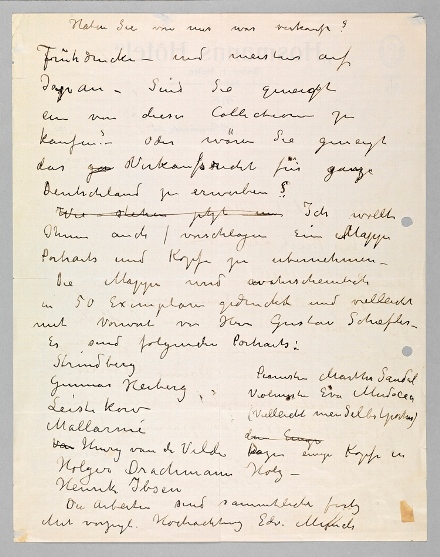 Haben Sie von mir was verkauft?
Frühdrucke – und meistens auf
Japan – Sind Sie geneigt
ein von dieser Collectionen zu
kaufen? – oder wären Sie geneigt
das Verkaufsrecht für ganz
Deutschland zu erwerben?
Ich wollte
Ihnen auch vorschlagen Ein Mappe
Portraits und Köpfe zu übernehmen –
Die Mappe wird wahrscheinlich
in 50 Exemplare gedruckt und vielleicht
mit Vorwort von Herr Gustav Schiefler –
Es sind folgende Portraits:
Strindberg
Gunnar Heiberg
Leistikow
Mallarmé
Henry van de Velde
Holger Drachmann
Henrik Ibsen
Pianistin Martha Sandal
Violinistin Eva Mudocci
(Vielleicht mein Selbstportrait)
einige Köpfe in
Holz –
Die Arbeiten sind sämmtliche fertig
Mit vorzügl. Hochachtung Edv. Munch